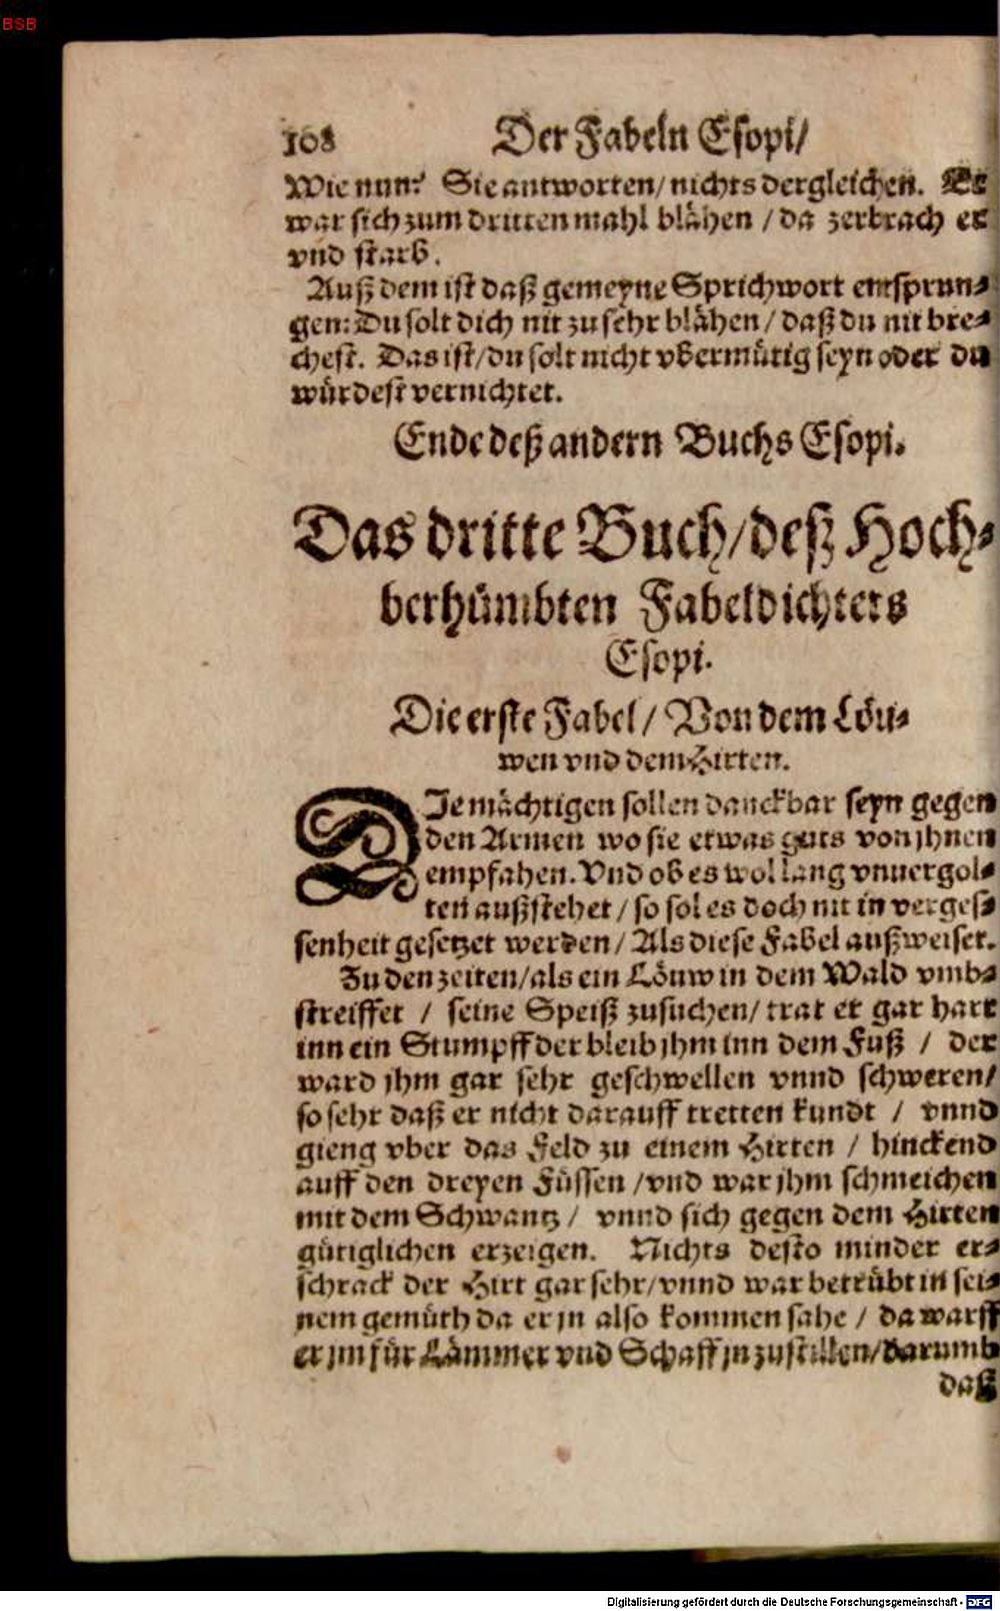 BSB
108 Der Fabeln Esopi/
Wie nun? Sie antworten/ nichts dergleichen. Er
war sich zum dritten mahl blähen / da zerbrach er
vnd starb.
Auß dem ist daß gemeyne Sprichwort entsprun-
gen: Du solt dich nit zu sehr blähen / daß du nit bre-
chest. Das ist/ du solt nicht vbermütig seyn oder du
würdest vernichtet.
Ende deß andern Buchs Esopi.
Das dritte Buch/ deß Hoch-
berhümbten Fabeldichters
Esopi.
Die erste Fabel / Von dem Löu-
wen vnd dem Hirten.
DIe mächtigen sollen danckbar seyn gegen
den Armen wo sie etwas guts von jhnen
empfahen. Vnd ob es wol lang vnuergol-
ten außstehet / so sol es doch nit in verges-
senheit gesetzet werden / Als diese Fabel außweiset.
Zu den zeiten/ als ein Löuw in dem Wald vmb-
streiffet / seine Speiß zusuchen/ trat er gar hart
inn ein Stumpff der bleib jhm inn dem Fuß / der
ward jhm gar sehr geschwellen vnnd schweren/
so sehr daß er nicht darauff tretten kundt / vnnd
gieng vber das Feld zu einem Hirten / hinckend
auff den dreyen Füssen / vnd war jhm schmeichen
mit dem Schwantz / vnnd sich gegen dem Hirten
gütiglichen erzeigen. Nichts desto minder er-
schrack der Hirt gar sehr/ vnnd war betrübt in sei-
nem gemüth da er jn also kommen sahe / da warff
er jm für Lämmer vnd Schaff jn zustillen/ darumb
daß
Digitalisierung gefördert durch die Deutsche Forschungsgemeinschaft - DFG